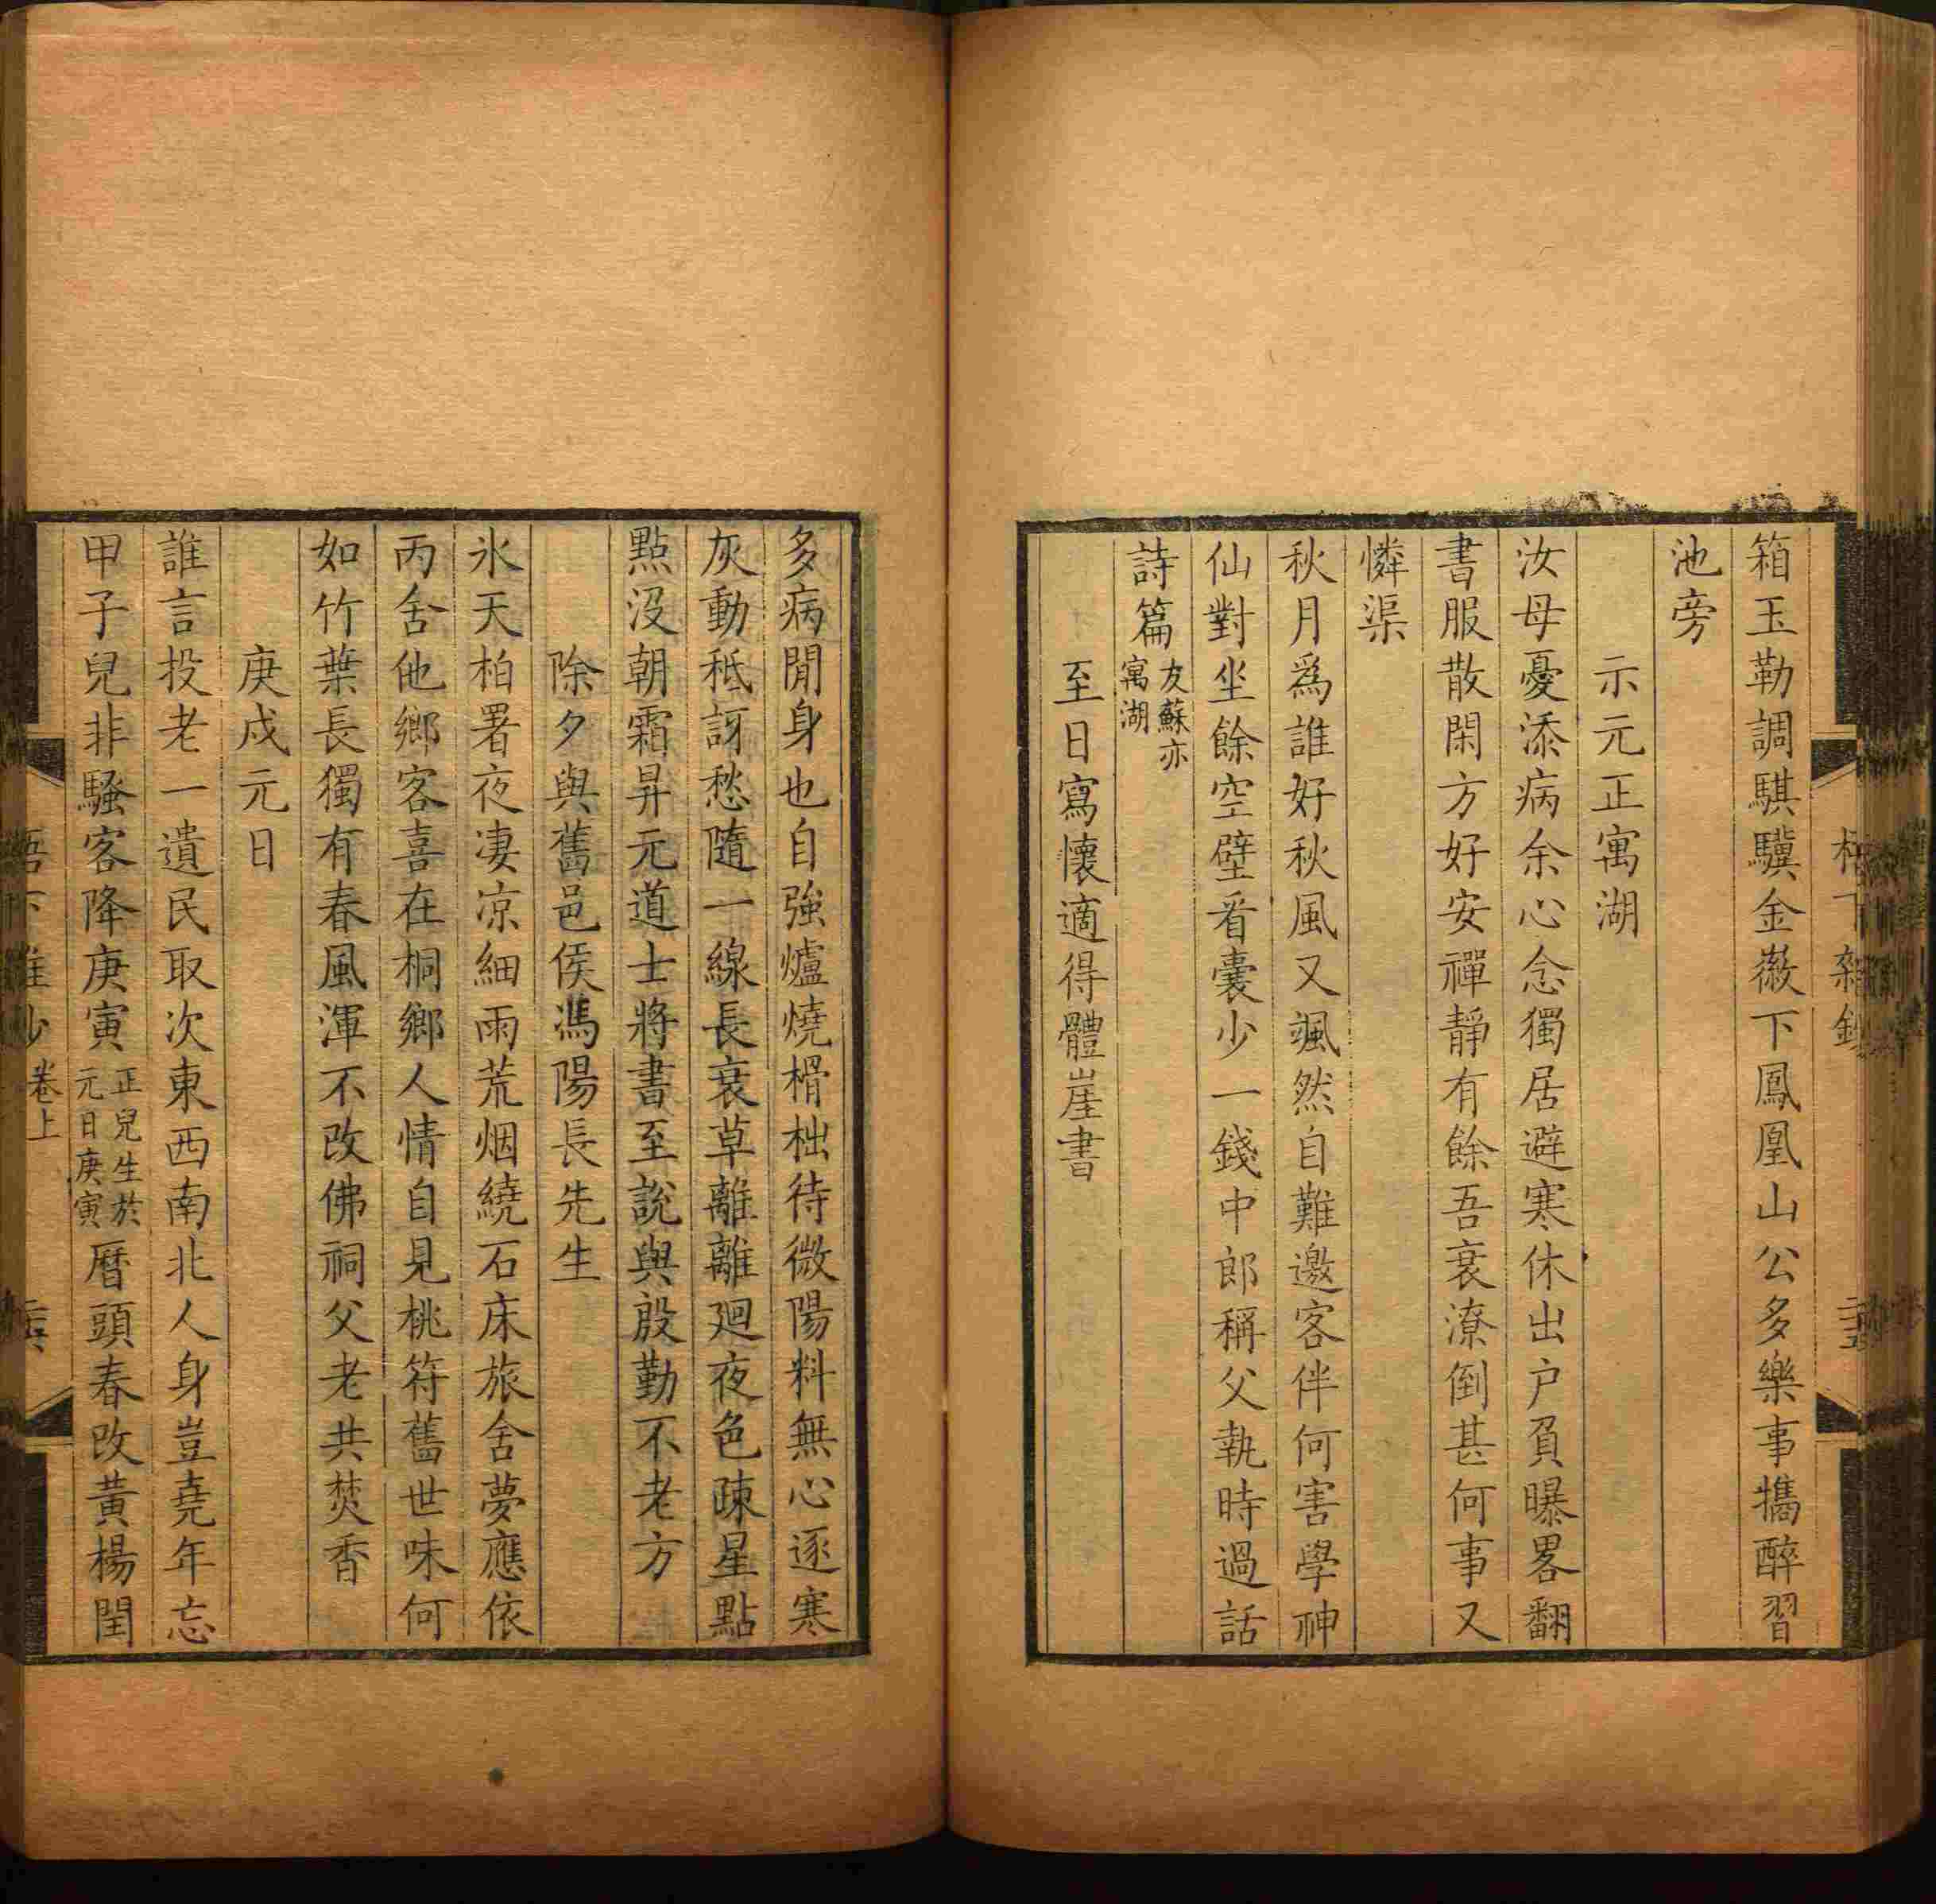 箱玉勒調騏驥金徽下鳳凰山公多樂事攜醉習
池旁
示元正寓湖
汝母憂添病余心念獨居避寒休出户負曝畧翻
書服散閑方好安禪靜有餘吾衰潦倒甚何事又
憐渠
秋月爲誰好秋風又颯然自難邀客伴何害學神
仙對坐餘空壁看囊少一錢中郎稱父執時過話
詩篇友蘇亦寓湖
至日寫懷適得體崖書
多病閒身也自強爐燒榾柮待微陽料無心逐寒
灰動秪訝愁隨一線長衰草離離廻夜色疎星點
點沒朝霜昇元道士將書至說與殷勤不老方
除夕與舊邑侯馮陽長先生
氷天柏署夜凄凉細雨荒烟繞石床旅舍夢應依
丙舍他鄉客喜在桐鄉人情自見桃符舊世味何
如竹葉長獨有春風渾不改佛祠父老共焚香
庚戍元日
誰言投老一遺民取次東西南北人身豈堯年忘
甲子兒非騷客降庚寅正兒生於元日庚寅曆頭春改黃楊閏
卷上